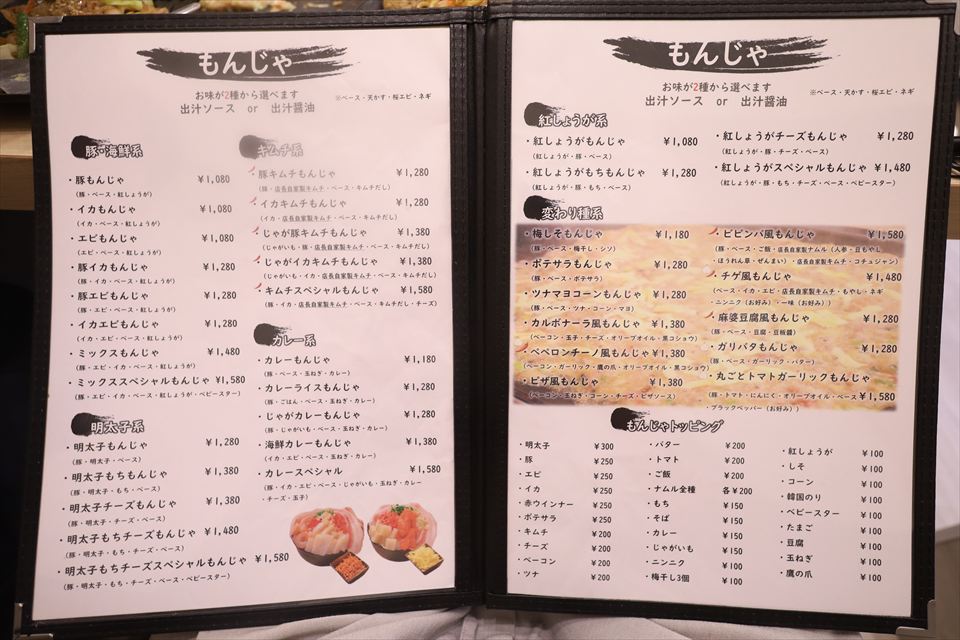 もんじゃ
お味が2種から選べます
出汁ソース or 出汁醤油
※ベース・天かす・桜エビ・ネギ
豚・海鮮系
・豚もんじゃ ¥1,080
(豚・ベース・紅しょうが)
・イカもんじゃ ¥1,080
(イカ・ベース・紅しょうが)
・エビもんじゃ ¥1,080
(エビ・ベース・紅しょうが)
・豚イカもんじゃ ¥1,280
(豚・イカ・ベース・紅しょうが)
・豚エビもんじゃ ¥1,280
(豚・エビ・ベース・紅しょうが)
・イカエビもんじゃ ¥1,280
(イカ・エビ・ベース・紅しょうが)
・ミックスもんじゃ ¥1,480
(豚・エビ・イカ・ベース・紅しょうが)
・ミックススペシャルもんじゃ ¥1,580
(豚・エビ・イカ・ベース・紅しょうが・ベビースター)
明太子系
・明太子もんじゃ ¥1,280
(豚・明太子・ベース)
・明太子もちもんじゃ ¥1,380
(豚・明太子・もち・ベース)
・明太子チーズもんじゃ ¥1,380
(豚・明太子・チーズ・ベース)
・明太子もちチーズもんじゃ ¥1,480
(豚・明太子・もち・チーズ・ベース)
・明太子もちチーズスペシャルもんじゃ ¥1,580
(豚・明太子・もち・チーズ・ベース・ベビースター)
キムチ系
・豚キムチもんじゃ ¥1,280
(豚・店長自家製キムチ・ベース・キムチだし)
・イカキムチもんじゃ ¥1,280
(イカ・店長自家製キムチ・ベース・キムチだし)
・じゃが豚キムチもんじゃ ¥1,380
(じゃがいも・豚・店長自家製キムチ・ベース・キムチだし)
・じゃがイカキムチもんじゃ ¥1,380
(じゃがいも・イカ・店長自家製キムチ・ベース・キムチだし)
・キムチスペシャルもんじゃ ¥1,580
(豚・イカ・店長自家製キムチ・ベース・キムチだし・チーズ)
カレー系
・カレーもんじゃ ¥1,180
(豚・ベース・玉ねぎ・カレー)
・カレーライスもんじゃ ¥1,280
(豚・ごはん・ベース・玉ねぎ・カレー)
・じゃがカレーもんじゃ ¥1,280
(豚・じゃがいも・ベース・玉ねぎ・カレー)
・海鮮カレーもんじゃ ¥1,380
(イカ・エビ・ベース・玉ねぎ・カレー)
・カレースペシャル ¥1,580
(豚・イカ・エビ・ベース・じゃがいも・玉ねぎ・カレー
・チーズ・玉子)
もんじゃ
お味が2種から選べます
出汁ソース or 出汁醤油
※ベース・天かす・桜エビ・ネギ
紅しょうが系
・紅しょうがもんじゃ ¥1,080
(紅しょうが・豚・ベース)
・紅しょうがもちもんじゃ ¥1,280
(紅しょうが・豚・もち・ベース)
・紅しょうがチーズもんじゃ ¥1,280
(紅しょうが・豚・チーズ・ベース)
・紅しょうがスペシャルもんじゃ ¥1,480
(紅しょうが・豚・もち・チーズ・ベース・ベビースター)
変わり種系
・梅しそもんじゃ ¥1,180
(豚・ベース・梅干し・シソ)
・ポテサラもんじゃ ¥1,280
(豚・ベース・ポテサラ)
・ツナマヨコーンもんじゃ ¥1,280
(豚・ベース・ツナ・コーン・マヨ)
・カルボナーラ風もんじゃ ¥1,380
(ベーコン・玉子・チーズ・オリーブオイル・黒コショウ)
・ペペロンチーノ風もんじゃ ¥1,380
(ベーコン・ガーリック・鷹の爪・オリーブオイル・黒コショウ)
・ピザ風もんじゃ ¥1,380
(ベーコン・玉ねぎ・コーン・チーズ・ピザソース)
・ビビンバ風もんじゃ ¥1,580
(豚・ベース・ご飯・店長自家製ナムル(人参・豆もやし
・ほうれん草・ぜんまい)・店長自家製キムチ・コチュジャン)
・チゲ風もんじゃ ¥1,480
(ベース・イカ・エビ・店長自家製キムチ・もやし・ネギ
・ニンニク(お好み)・一味(お好み))
・麻婆豆腐風もんじゃ ¥1,280
(豚・ベース・豆腐・豆板醤)
・ガリバタもんじゃ ¥1,280
(豚・ベース・ガーリック・バター)
・丸ごとトマトガーリックもんじゃ
(豚・トマト・にんにく・オリーブオイル・ベース ¥1,580
・ブラックペッパー(お好み))
もんじゃトッピング
・明太子 ¥300
・豚 ¥250
・エビ ¥250
・イカ ¥250
・赤ウインナー ¥250
・ポテサラ ¥250
・キムチ ¥200
・チーズ ¥200
・ベーコン ¥200
・ツナ ¥200
・バター ¥200
・トマト ¥200
・ご飯 ¥200
・ナムル全種 各¥200
・もち ¥150
・そば ¥150
・カレー ¥150
・じゃがいも ¥150
・ニンニク ¥100
・梅干し3個 ¥100
・紅しょうが ¥100
・しそ ¥100
・コーン ¥100
・韓国のり ¥100
・ベビースター ¥100
・たまご ¥100
・豆腐 ¥100
・玉ねぎ ¥100
・鷹の爪 ¥100